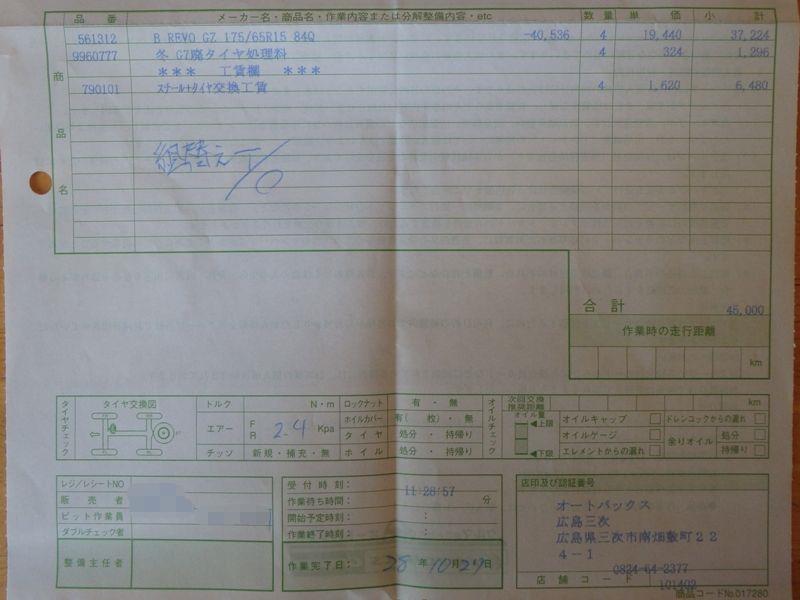 品 番 メーカー名・商品名・作業内容または分解整備内容・etc 数量 単 価 小 計
561312 B REVO GZ 175/65R15 84Q -40,536 4 19,440 37,224
9960777 冬 G7廃タイヤ処理料 4 324 1,296
商 *** 工賃欄 ***
790101 スチール+タイヤ交換工賃 4 1,620 6,480
品
組替え
名
合 計 45,000
作業時の走行距離
km
タイヤチェック タイヤ交換図 トルク N・m ロックナット 有 ・ 無 オイルチェック 次回交換推奨距離 km
エアー F R 2.4 Kpa ホイルカバー 有( 枚)・ 無 オイル量 上限 オイルキャップ ドレンコックからの漏れ
タイヤ 処分 ・ 持帰り オイルゲージ 余りオイル 処分
チッソ 新規・補充・無 ホイル 処分 ・ 持帰り 下限 エレメントからの漏れ 持帰り
レジ/レシートNO 受付時刻: 11:28:57 店印及び認証番号
販売者 作業待ち時間: 分 オートバックス
ピット作業員 開始予定時刻: : 広島三次
ダブルチェック者 作業終了時刻: : 広島県三次市南畑敷町22
4-1
整備主任者 作業完了日: 28 年 10 月 27 日 0824-64-2377
店舗コード 101402
商品コードNo.017280